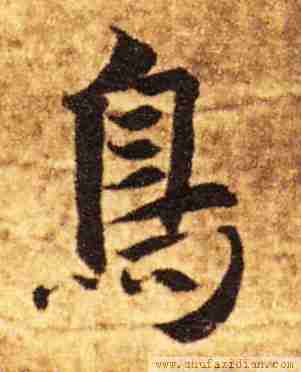 鳥
www.shufazidian.com